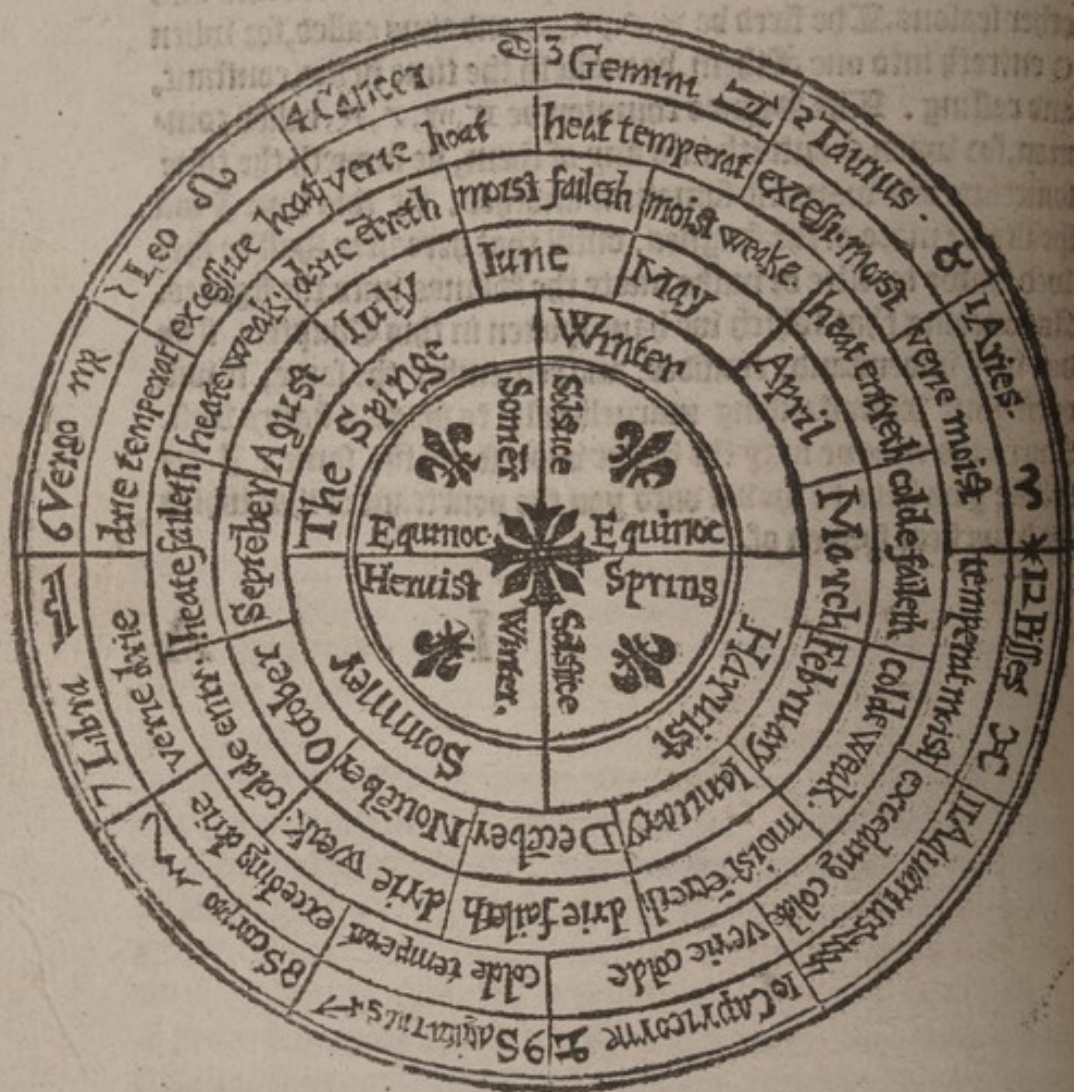 1 Aries. ♈
2 Taurus. ♉
3 Gemini ♊
4 Cancer ♋
Leo ♌
6 Vergo ♍
7 Libra ♎
8 Scorpio ♏
9 Sagitarius ♐
10 Capricorne ♑
11 Aquarius ♒
12 Pisses ♓
verie moist
excessi. moist
heat temperat
verie heat
excessiue heat
drie temperat
verie drie
exceeding drie
colde temperat
verie colde
excedung colde
temperat moist
colde faileth
heat entreth
moist weake.
moist faileth
drie ētreth
heate weak:
heate faileth
colde entr.
drie weak:
drie faileth
moist ētreth
colde weak.
March
April
May
Iune
Iuly
Agust
Septēber
October
Nouēber
Decēber
Ianuary
February
Winter
The Spinge
Sommer
Haruist
Solstice
Sommēr
Equinoc.
Equinoc
Heruist
Spring
Winter.
Solstice